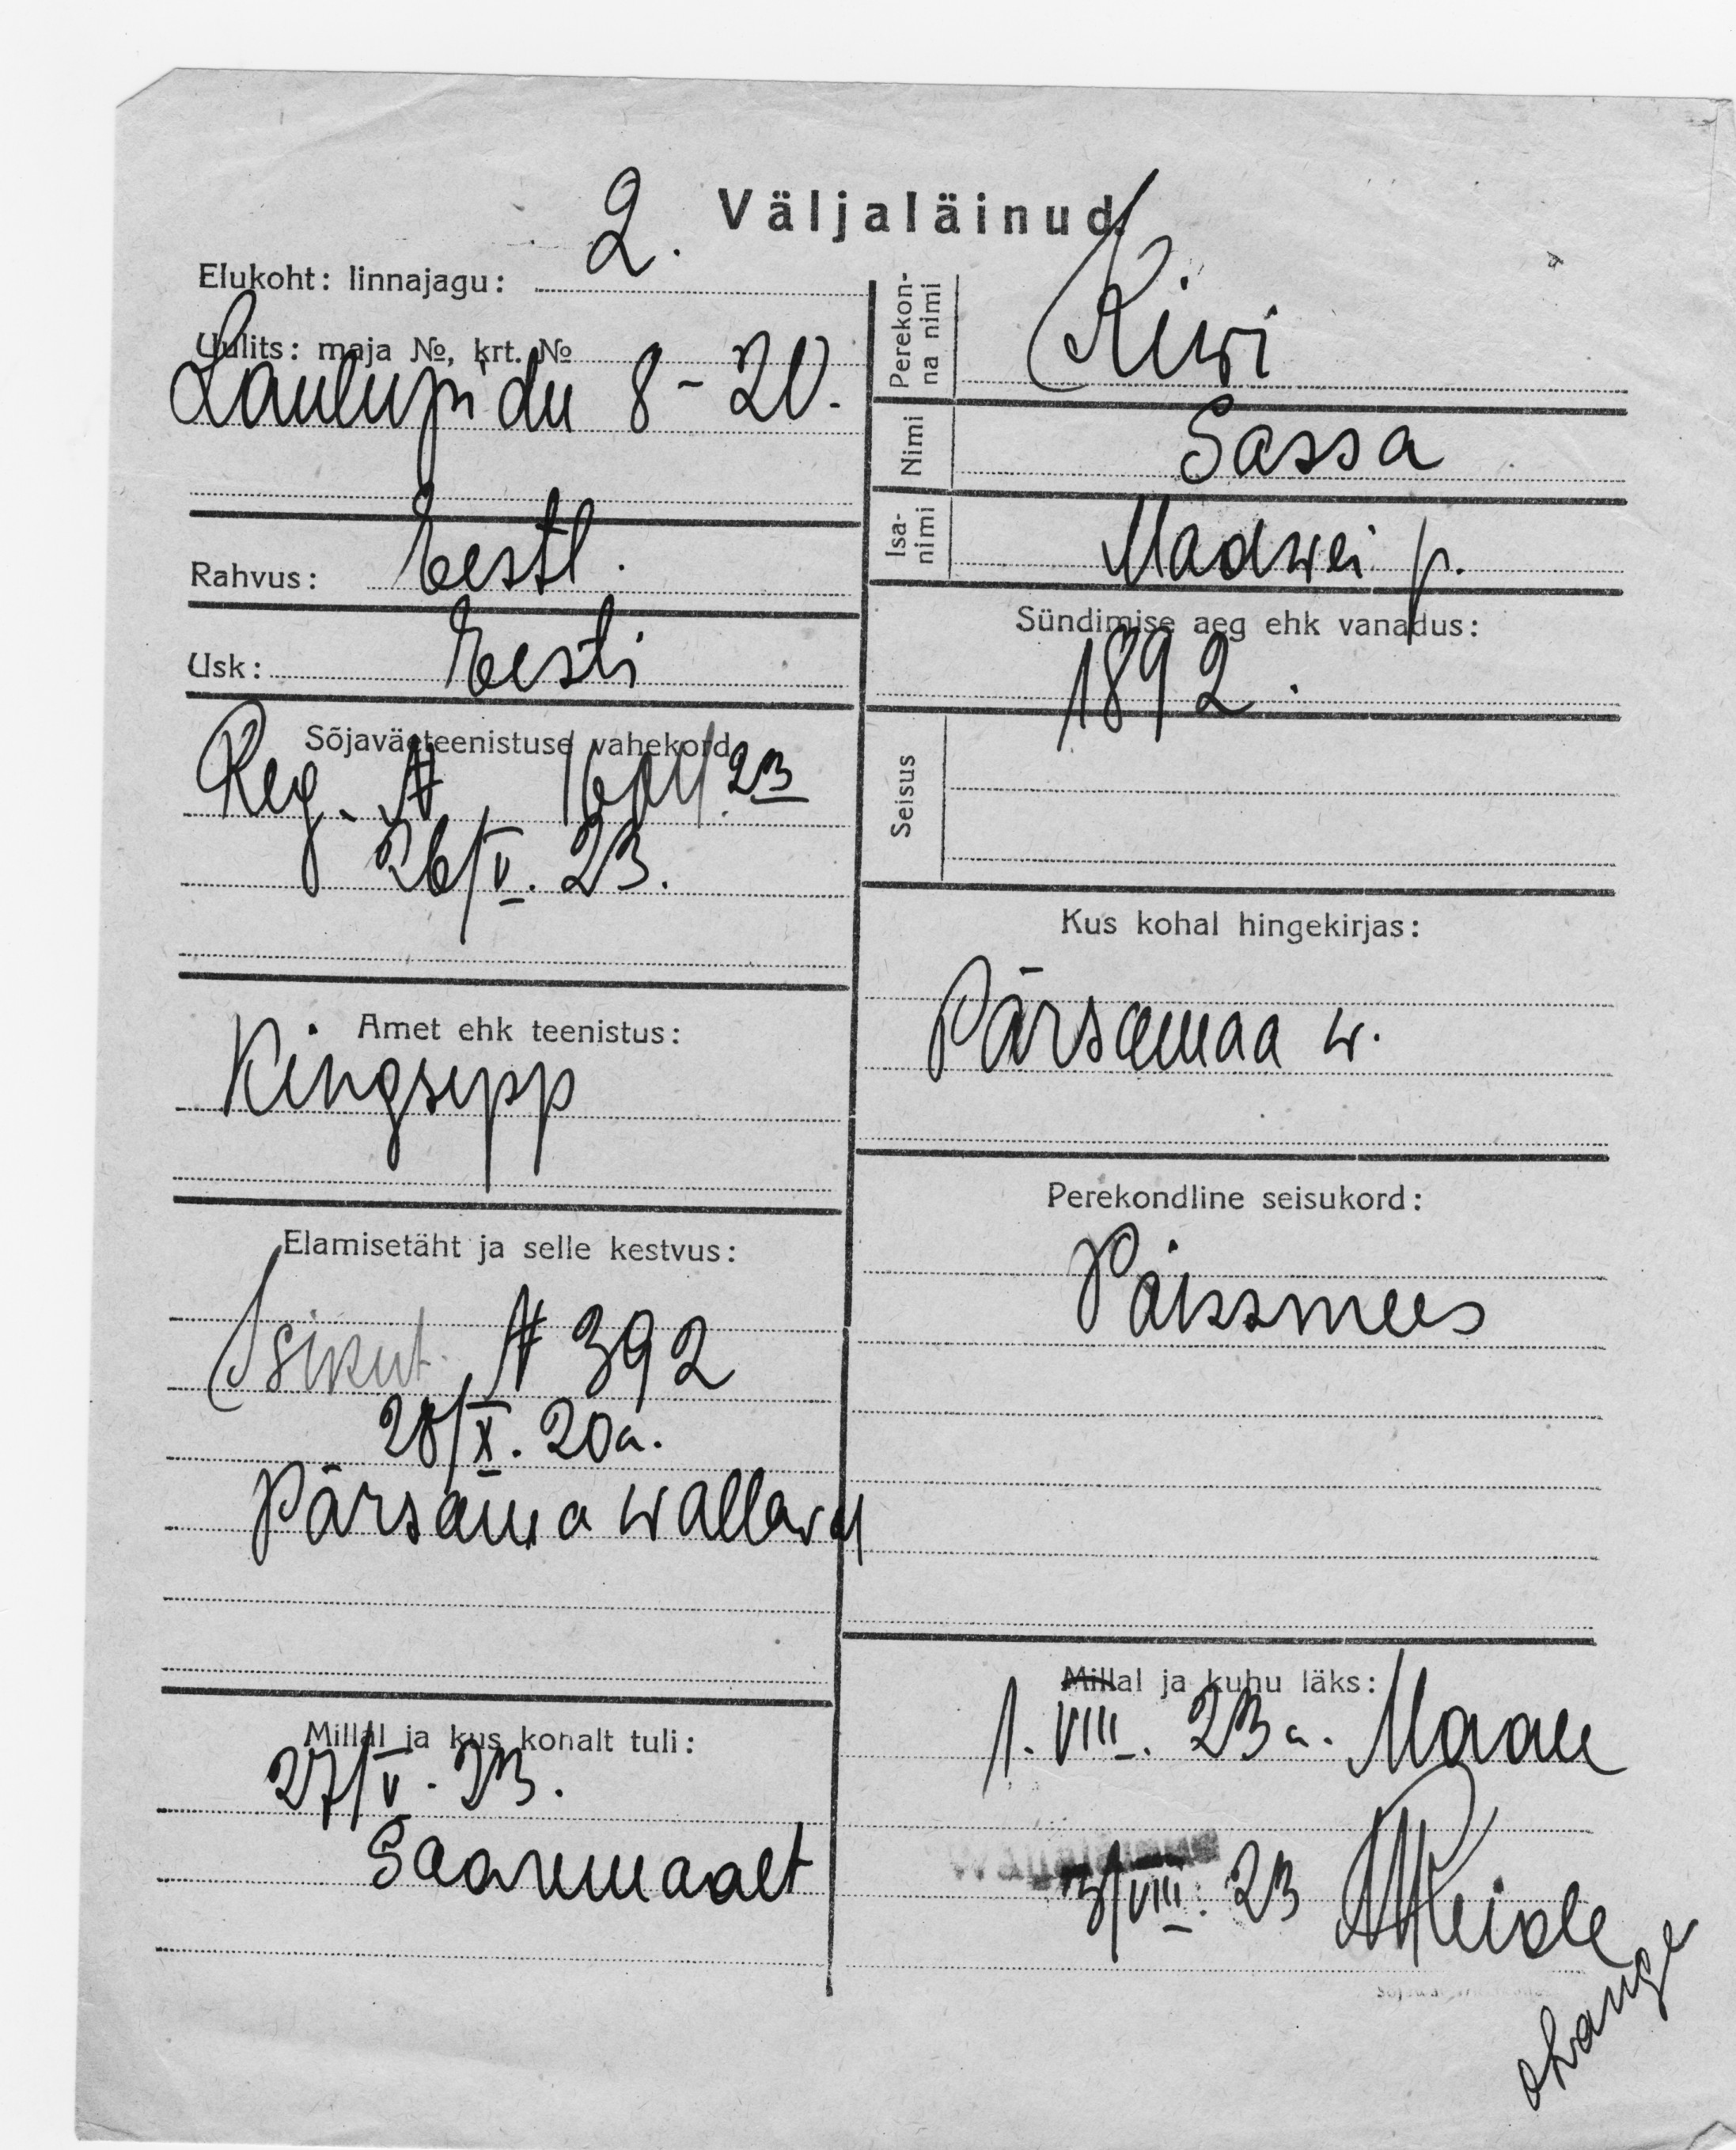 Väljaläinud.
Elukoht: linnajagu: 2.
Uulits: maja №, krt. №
Laulupidu 8-20.
Rahvus: Eestl.
Usk: Eesti
Sõjaväeteenistuse vahekord
Reg. №
26/V. 23.
Amet ehk teenistus:
Kingsepp
Elamisetäht ja selle kestvus:
Isikut. № 392
28/X. 20 a.
Pärsama wallaw.
Millal ja kus kohalt tuli:
27/V. 23.
Saaremaalt
Perekonna nimi
Kiwi
Nimi
Sassa
Isanimi
Madwei p.
Sündimise aeg ehk vanadus:
1892.
Seisus
Kus kohal hingekirjas:
Pärsamaa w.
Perekondline seisukord:
Poissmees
Millal ja kuhu läks:
1. VIII. 23 a. Maale
3/VIII. 23